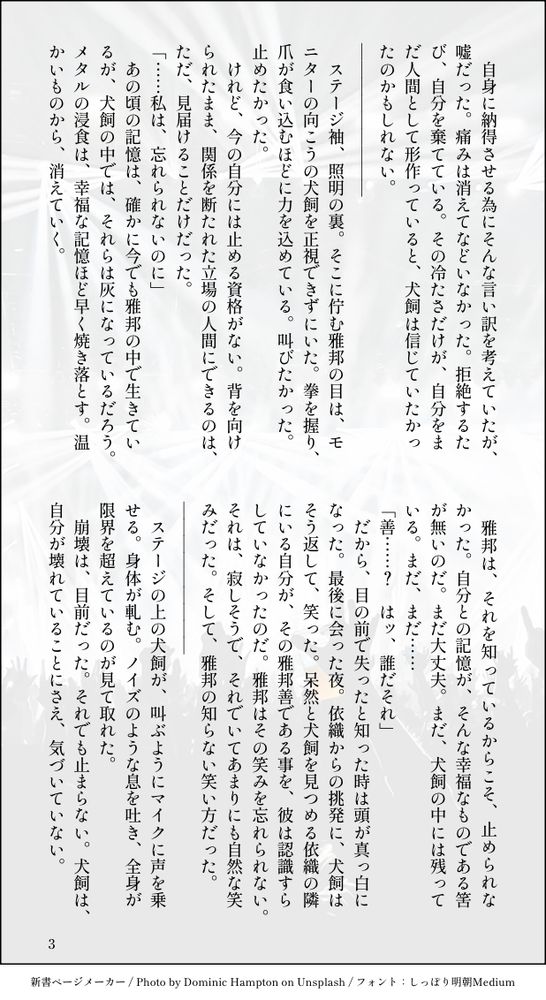 自身に納得させる為にそんな言い訳を考えていたが、
嘘だった。痛みは消えてなどいなかった。拒絶するた
び、自分を棄てている。その冷たさだけが、自分をま
だ人間として形作っていると、犬飼は信じていたかっ
たのかもしれない。
　ステージ袖、照明の裏。そこに佇む雅邦の目は、モ
ニターの向こうの犬飼を正視できずにいた。拳を握り、
爪が食い込むほどに力を込めている。叫びたかった。
止めたかった。
　けれど、今の自分には止める資格がない。背を向け
られたまま、関係を断たれた立場の人間にできるのは、
ただ、見届けることだけだった。
「……私は、忘れられないのに」
　あの頃の記憶は、確かに今でも雅邦の中で生きてい
るが、犬飼の中では、それらは灰になっているだろう。
メタルの浸食は、幸福な記憶ほど早く焼き落とす。温
かいものから、消えていく。
　雅邦は、それを知っているからこそ、止められな
かった。自分との記憶が、そんな幸福なものである筈
が無いのだ。まだ大丈夫。まだ、犬飼の中には残って
いる。まだ、まだ……
「善……？　はッ、誰だそれ」
　だから、目の前で失ったと知った時は頭が真っ白に
なった。最後に会った夜。依織からの挑発に、犬飼は
そう返して、笑った。呆然と犬飼を見つめる依織の隣
にいる自分が、その雅邦善である事を、彼は認識すら
していなかったのだ。雅邦はその笑みを忘れられない。
それは、寂しそうで、それでいてあまりにも自然な笑
みだった。そして、雅邦の知らない笑い方だった。
　ステージの上の犬飼が、叫ぶようにマイクに声を乗
せる。身体が軋む。ノイズのような息を吐き、全身が
限界を超えているのが見て取れた。
　崩壊は、目前だった。それでも止まらない。犬飼は、
自分が壊れていることにさえ、気づいていない。
3
新書ページメーカー / Photo by Dominic Hampton on Unsplash / フォント：しっぽり明朝Medium